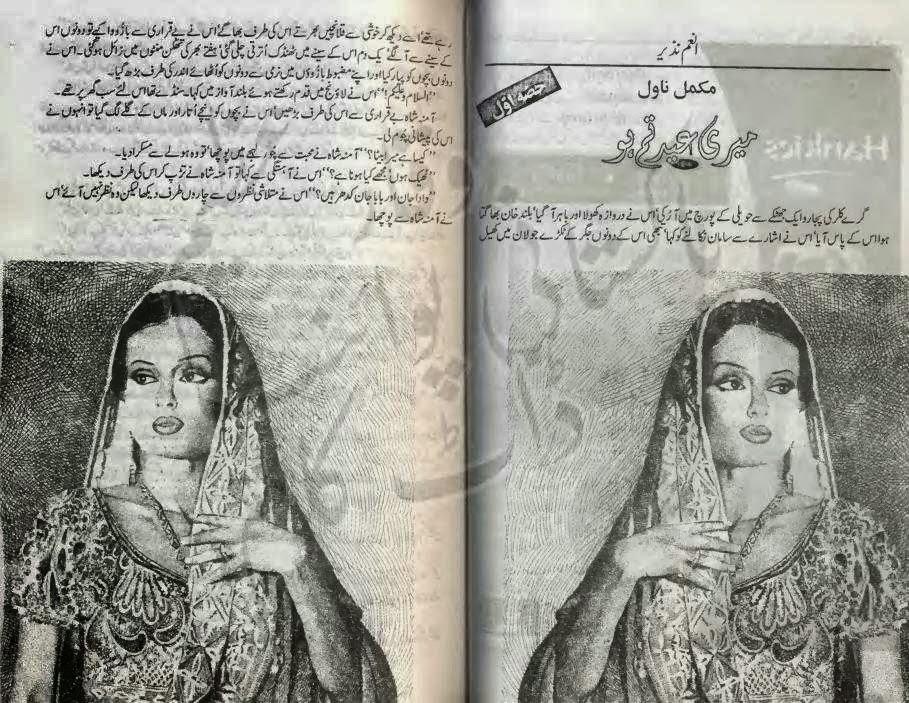 انعم نذیر
مکمل ناول
حصہ اوّل
میری عید تم ہو
گرے کلر کی پجارو ایک جھٹکے سے حویلی کے پورچ میں آ رُکی‘ اس نے دروازہ کھولا اور باہر آ گیا‘ بلند خان بھاگتا
ہوا اس کے پاس آیا‘ اس نے اشارے سے سامان نکالنے کو کہا‘ تبھی اس کے دونوں جگر کے ٹکڑے جو لان میں کھیل
رہے تھے‘ اسے دیکھ کر خوشی سے قلانچیں بھرتے اس کی طرف بھاگے‘ اس نے بے قراری سے بازو وا کیے تو دونوں اس
کے سینے سے آ لگے‘ یک دم اس کے سینے میں ٹھنڈک اُترتی چلی گئی‘ ہفتے بھر کی تھکن منٹوں میں زائل ہو گئی۔ اس نے
دونوں بچوں کو پیار کیا اور اپنے مضبوط بازوؤں میں نرمی سے دونوں کو اُٹھائے اندر کی طرف بڑھ گیا۔
’’السلام وعلیکم!‘‘ اس نے لاؤنج میں قدم رکھتے ہوئے بلند آواز میں کہا۔ سنڈے تھا اس لئے سب گھر پر تھے۔
آمنہ شاہ بے قراری سے اس کی طرف بڑھیں‘ اس نے بچوں کو نیچے اُتارا اور ماں کے گلے لگ گیا تو انہوں نے
اس کی پیشانی چوم لی۔
’’کیسا ہے میرا بیٹا؟‘‘ آمنہ شاہ نے محبت سے چُور لہجے میں پوچھا‘ تو وہ ہولے سے مسکرا دیا۔
’’ٹھیک ہوں‘ مجھے کیا ہونا ہے؟‘‘ اس نے آہستگی سے کہا تو آمنہ شاہ نے تڑپ کر اس کی طرف دیکھا۔
’’دادا جان اور بابا جان کدھر ہیں؟‘‘ اس نے متلاشی نظروں سے چاروں طرف دیکھا لیکن وہ نظر نہیں آئے‘ اس
نے آمنہ شاہ سے پوچھا۔
Hankies